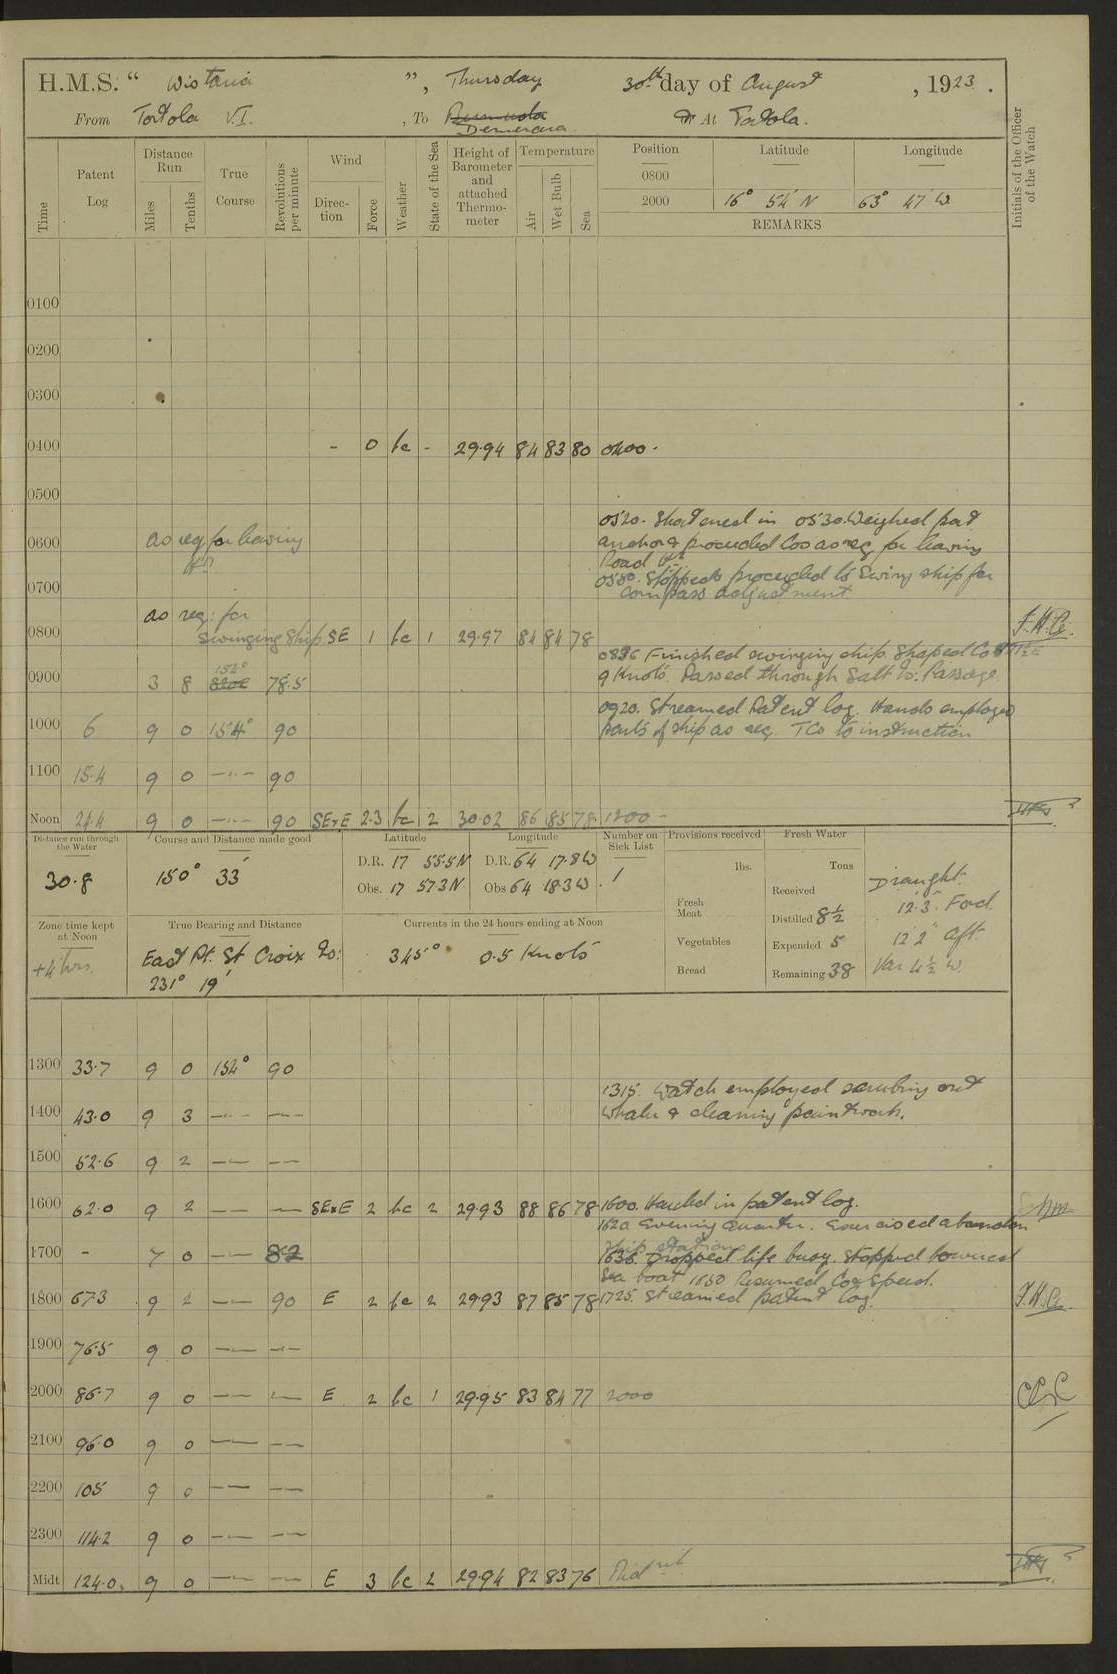 H.M.S. “ Wistaria ”, Thursday 30th day of August, 1923.
From Tortola V.I., To Demerara At Tortola.
Time
Patent Log
Distance Run
Miles
Tenths
True Course
Revolutions per minute
Wind
Direction
Force
Weather
State of the Sea
Height of Barometer and attached Thermometer
Temperature
Air
Wet Bulb
Sea
Position
Latitude
Longitude
0800
2000 16° 54' N 63° 47' W.
REMARKS
Initials of the Officer of the Watch
0100
0200
0300
0400 - 0 bc - 29.94 84 83 80 0400 -
0500
0520. Shortened in 0530. Weighed port
0600 as req for leaving anchor & proceeded Cos as req for leaving
Road
0700 0550. Stopped & proceeded to Swing ship for
compass adjustment.
as req: for
0800 Swinging Ship. SE 1 bc 1 29.97 84 84 78
0836 Finished swinging ship. Shaped Co
152°
0900 3 8 78.5 9 Knots. Passed through Salt Is: Passage.
0920. Streamed Patent log. Hands employed
1000 6 9 0 154° 90 parts of ship as req. TCo to instruction
1100 15.4 9 0 —"— 90
Noon 24.4 9 0 —"— 90 SExE 2.3 bc 2 30.02 86 85 78. 1200 -
Distance run through the Water
30.8
Course and Distance made good
150° 33'
Latitude
D.R. 17 55.5 N
Obs. 17 57.3 N
Longitude
D.R. 64 17.8 W
Obs 64 18.3 W.
Number on Sick List
1
Provisions received
lbs.
Fresh Meat
Vegetables
Bread
Fresh Water
Tons
Received
Distilled 8½
Expended 5
Remaining 38
Draught.
12'.3". Ford.
12' 2" aft.
Var 4½ W.
Zone time kept at Noon
+4 hrs.
True Bearing and Distance
East Pt. St Croix Is:
231° 19'
Currents in the 24 hours ending at Noon
345° 0.5 Knots
1300 33.7 9 0 154° 90
1315. Watch employed scrubing out
1400 43.0 9 3 —"— —"— whaler & cleaning paintwork.
1500 52.6 9 2 —"— —"—
1600 62.0 9 2 —"— —"— SExE 2 bc 2 29.93 88 86 78 1600. Hauled in patent log.
1620 Evening Quarters. Exercised abandon
ship stations
1700 - 7 0 —"— 82 1636. Dropped life buoy. Stopped lowered
Sea boat 1650 Resumed Co & Speed.
1800 67.3 9 2 —"— 90 E 2 bc 2 29.93 87 85 78 1725. Streamed patent log.
1900 76.5 9 0 —"— —"—
2000 86.7 9 0 —"— —"— E 2 bc 1 29.95 83 84 77 2000
2100 96.0 9 0 —"— —"—
2200 105 9 0 —"— —"—
2300 114.2 9 0 —"— —"—
Midt 124.0. 9 0 —"— —"— E 3 bc 2 29.94 82 83 76